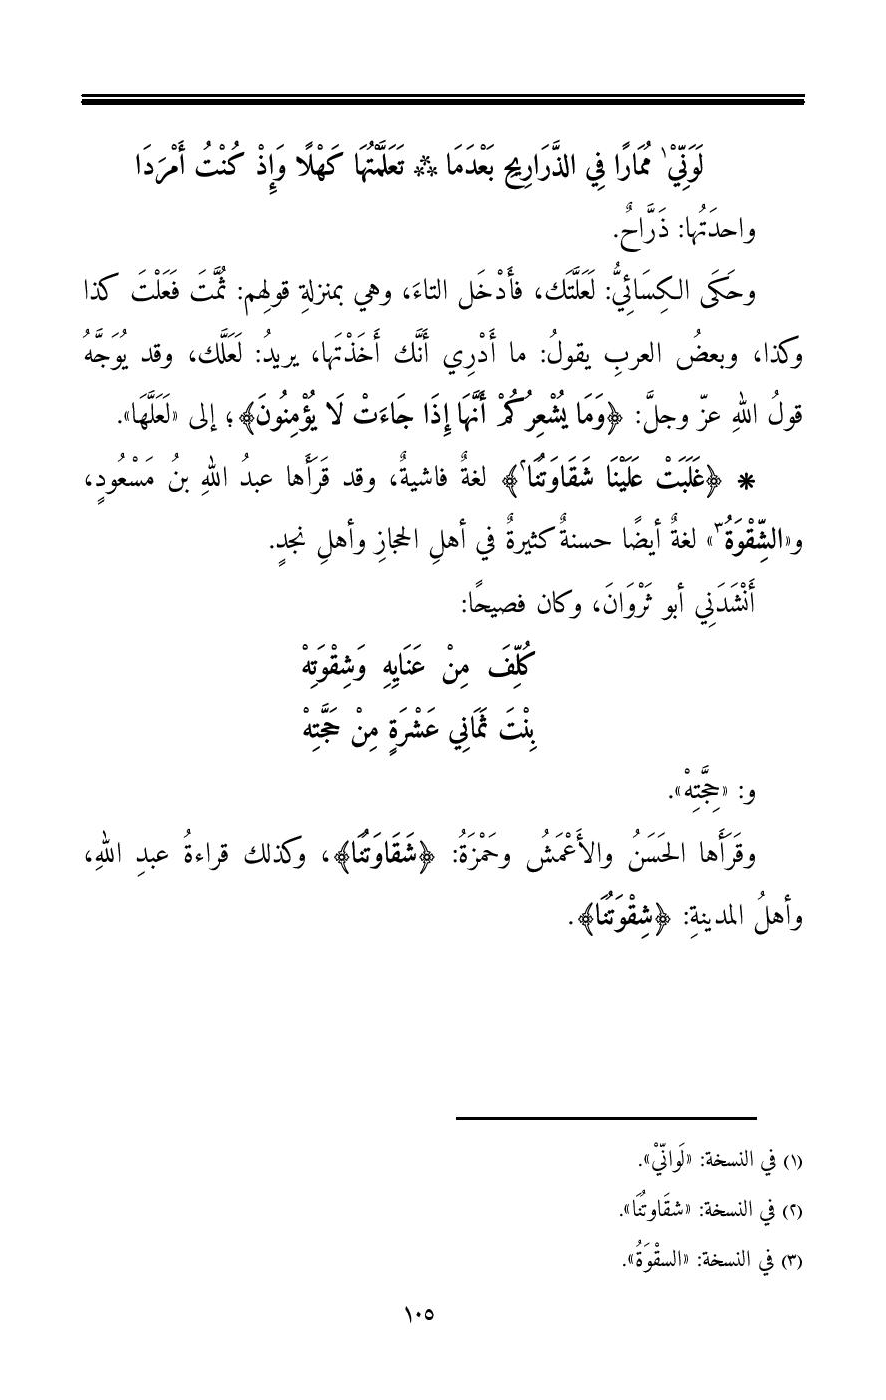 لَوَنِّيْ١ مُمَارًا فِي الذَّرَارِيحِ بَعْدَمَا ** تَعَلَّمْتُهَا كَهْلًا وَإِذْ كُنْتُ أَمْرَدَا
واحدَتُها: ذَرَّاحٌ.
وحَكَى الكِسَائِيُّ: لَعَلَّتَك، فأَدْخَل التاءَ، وهي بمنزلةِ قولِهم: ثُمَّتَ فَعَلْتَ كذا
وكذا، وبعضُ العربِ يقولُ: ما أَدْرِي أَنَّك أَخَذْتَها، يريدُ: لَعَلَّك، وقد يُوَجَّهُ
قولُ اللهِ عزّ وجلَّ: ﴿وَمَا يُشْعِرُكُمْ أَنَّهَا إِذَا جَاءَتْ لَا يُؤْمِنُونَ﴾؛ إلى «لَعَلَّهَا».
* ﴿غَلَبَتْ عَلَيْنَا شَقَاوَتُنَا٢﴾ لغةٌ فاشيةٌ، وقد قَرَأَها عبدُ اللهِ بنُ مَسْعُودٍ،
و«الشِّقْوَةُ٣» لغةٌ أيضًا حسنةٌ كثيرةٌ في أهلِ الحجازِ وأهلِ نجدٍ.
أَنْشَدَنِي أبو ثَرْوَانَ، وكان فصيحًا:
كُلِّفَ مِنْ عَنَايِهِ وَشِقْوَتِهْ
بِنْتَ ثَمَانِي عَشْرَةٍ مِنْ حَجَّتِهْ
و: «حِجَّتِهْ».
وقَرَأَها الحَسَنُ والأَعْمَشُ وحَمْزَةُ: ﴿شَقَاوَتُنَا﴾، وكذلك قراءةُ عبدِ اللهِ،
وأهلُ المدينةِ: ﴿شِقْوَتُنَا﴾.
(١) في النسخة: «لَوانِّيْ».
(٢) في النسخة: «شقَاوتُنَا».
(٣) في النسخة: «السقْوَةُ».
١٠٥